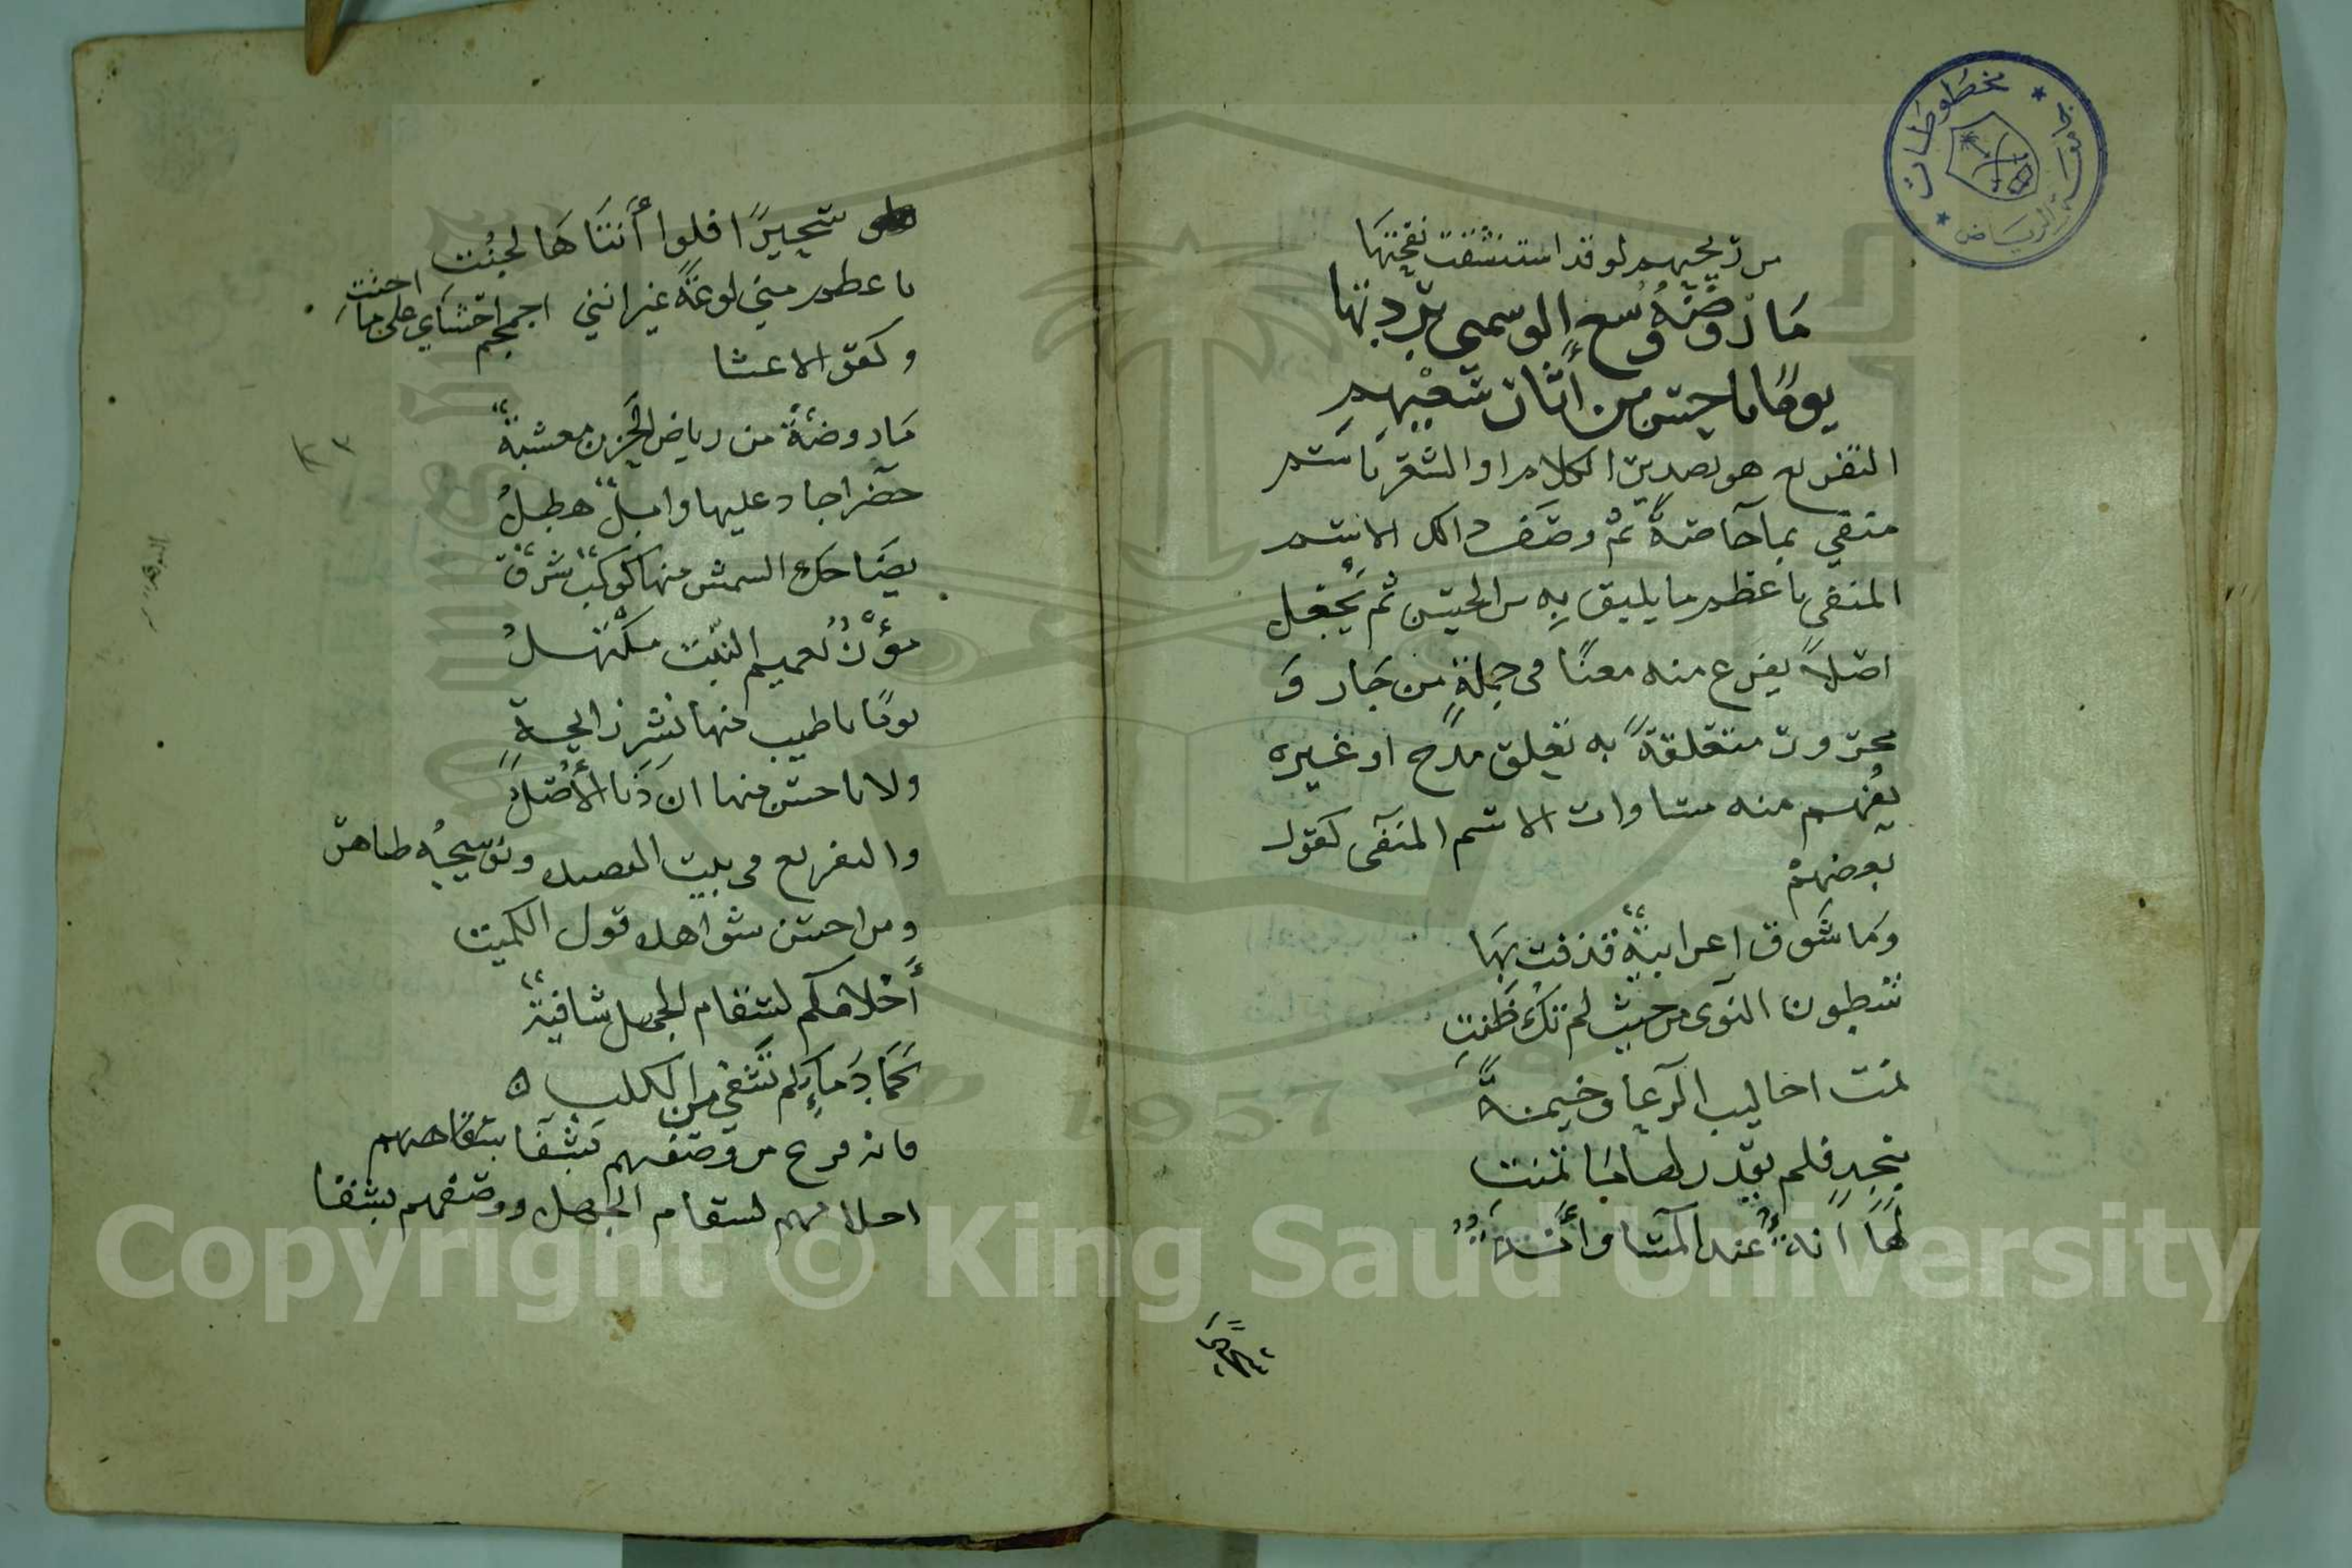 من ريحهم لو قد استنشقت نفحتها
مَا رَوضَةٌ وُسِعَ الوسمي بُردتها
يومًا باحسن من أثار سَعْيهم
التفريع هو تصدير الكلام او الشعر باسم
منفي بما خاصةً ثم وصف ذلك الاسم
المنفي باعظم ما يليق بِهِ من الحسن ثم يُجعل
اصلاً يفرع منه معنًا في جملةٍ من جار وَ
مجرور متعلقةً به تعلق مدح او غيره
يُفهم منه مساوات الاسم المنفى كقول
بعضهمْ
وَما شَوق اعرابيةٌ قذفت بِهَا
شطون النوى من حيث لم تكُ ظَنتِ
تمنت احاليب الرعا وخيمةً
بنجدٍ فلم يقدر لها مَا تمنتِ
لَهَا انةٌ عند المسا وأنةٌ
سُحيرًا
سُحيرًا فلوا أنتاهَا لجُنت
باعظم مني لوعةً غير انني اجمجم احشاي على ما اجنت
وكقول الاعشا
مَا روضةٌ من رياض الحَزن معشبةٌ
خضرا جاد عليها وابلٌ هطِلُ
يضَاحك الشمس منها كوكبٌ شرقٌ
مؤزرٌ بعميم النبت مكتهلُ
يومًا باطيب منها نشر رايحةٍ
ولا باحسن منها ان دَنا الأُصُلُ
والتفريع في بيت القصيده وتوشيحُه ظاهر
ومن احسن شواهده قول الكميت
أَحْلامكم لسقام الجهل شافيةٌ
كَمَا دِمَاؤكم تَشفي من الكلب ه
فانه فرع من وصفهم بشفا سقامهم
احلامهم لسقام الجهل ووصفهم بشفا
مخطوطات
الرياض
Copyright © King Saud University
1957